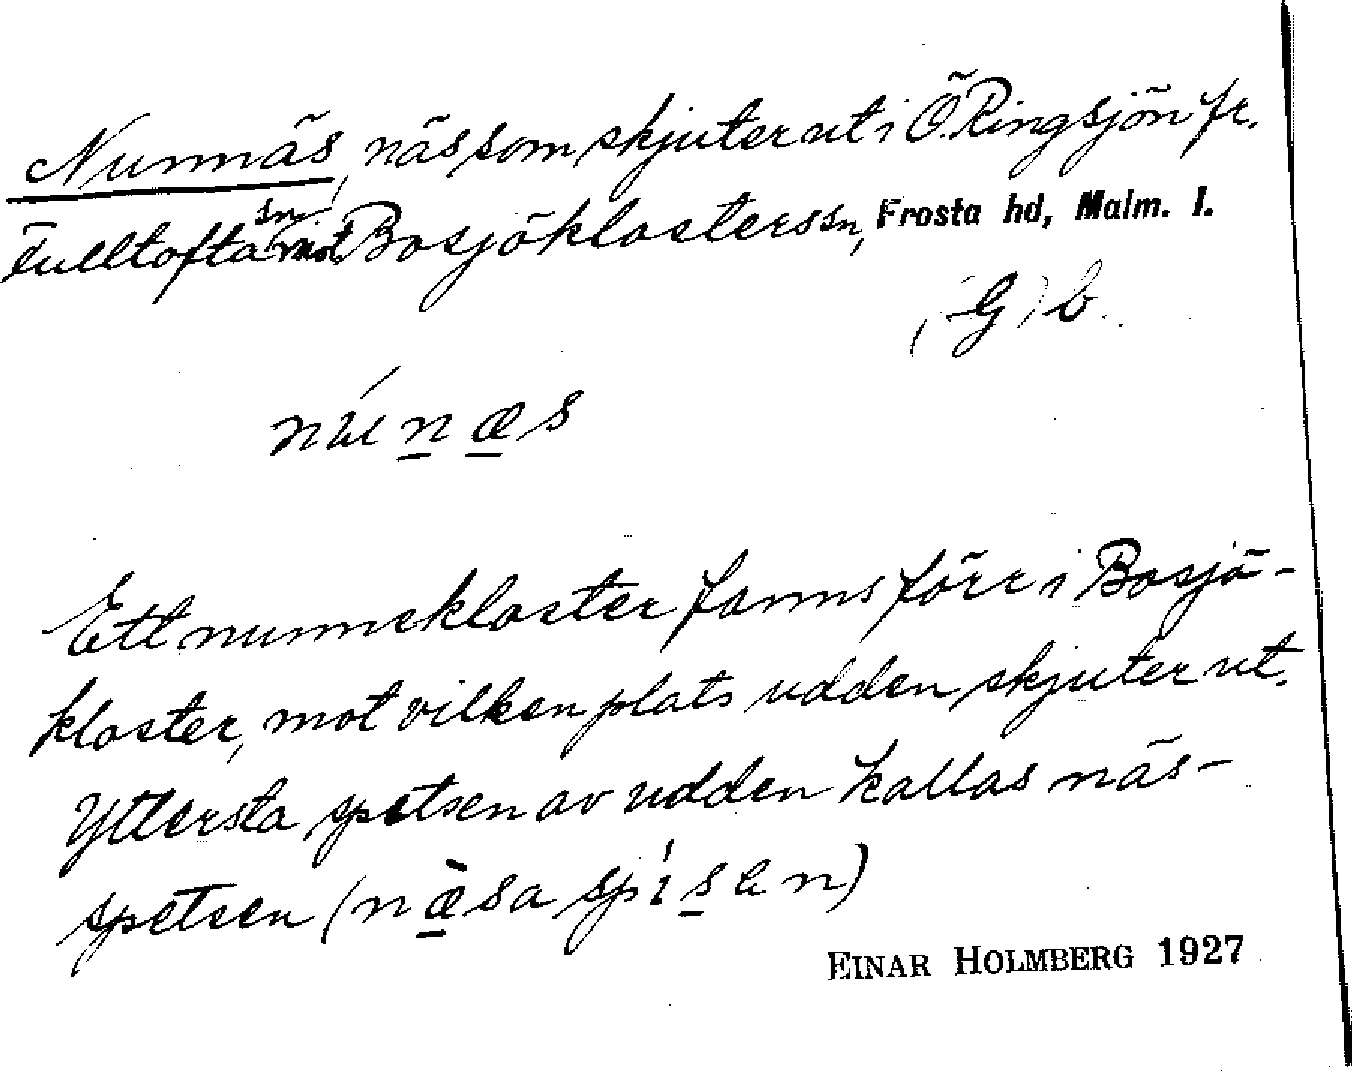 Nunnäs, näs som skjuter ut i Ö. Ringsjön fr.
Fulltofta sn mot Bosjöklosters sn, Frosta hd, Malm. l.
(G) b.
núnæs
Ett nunnekloster fanns förr i Bosjö-
kloster, mot vilken plats udden skjuter ut.
Yttersta spetsen av udden kallas näs-
spetsen (næ̀sa spísen)
EINAR HOLMBERG 1927